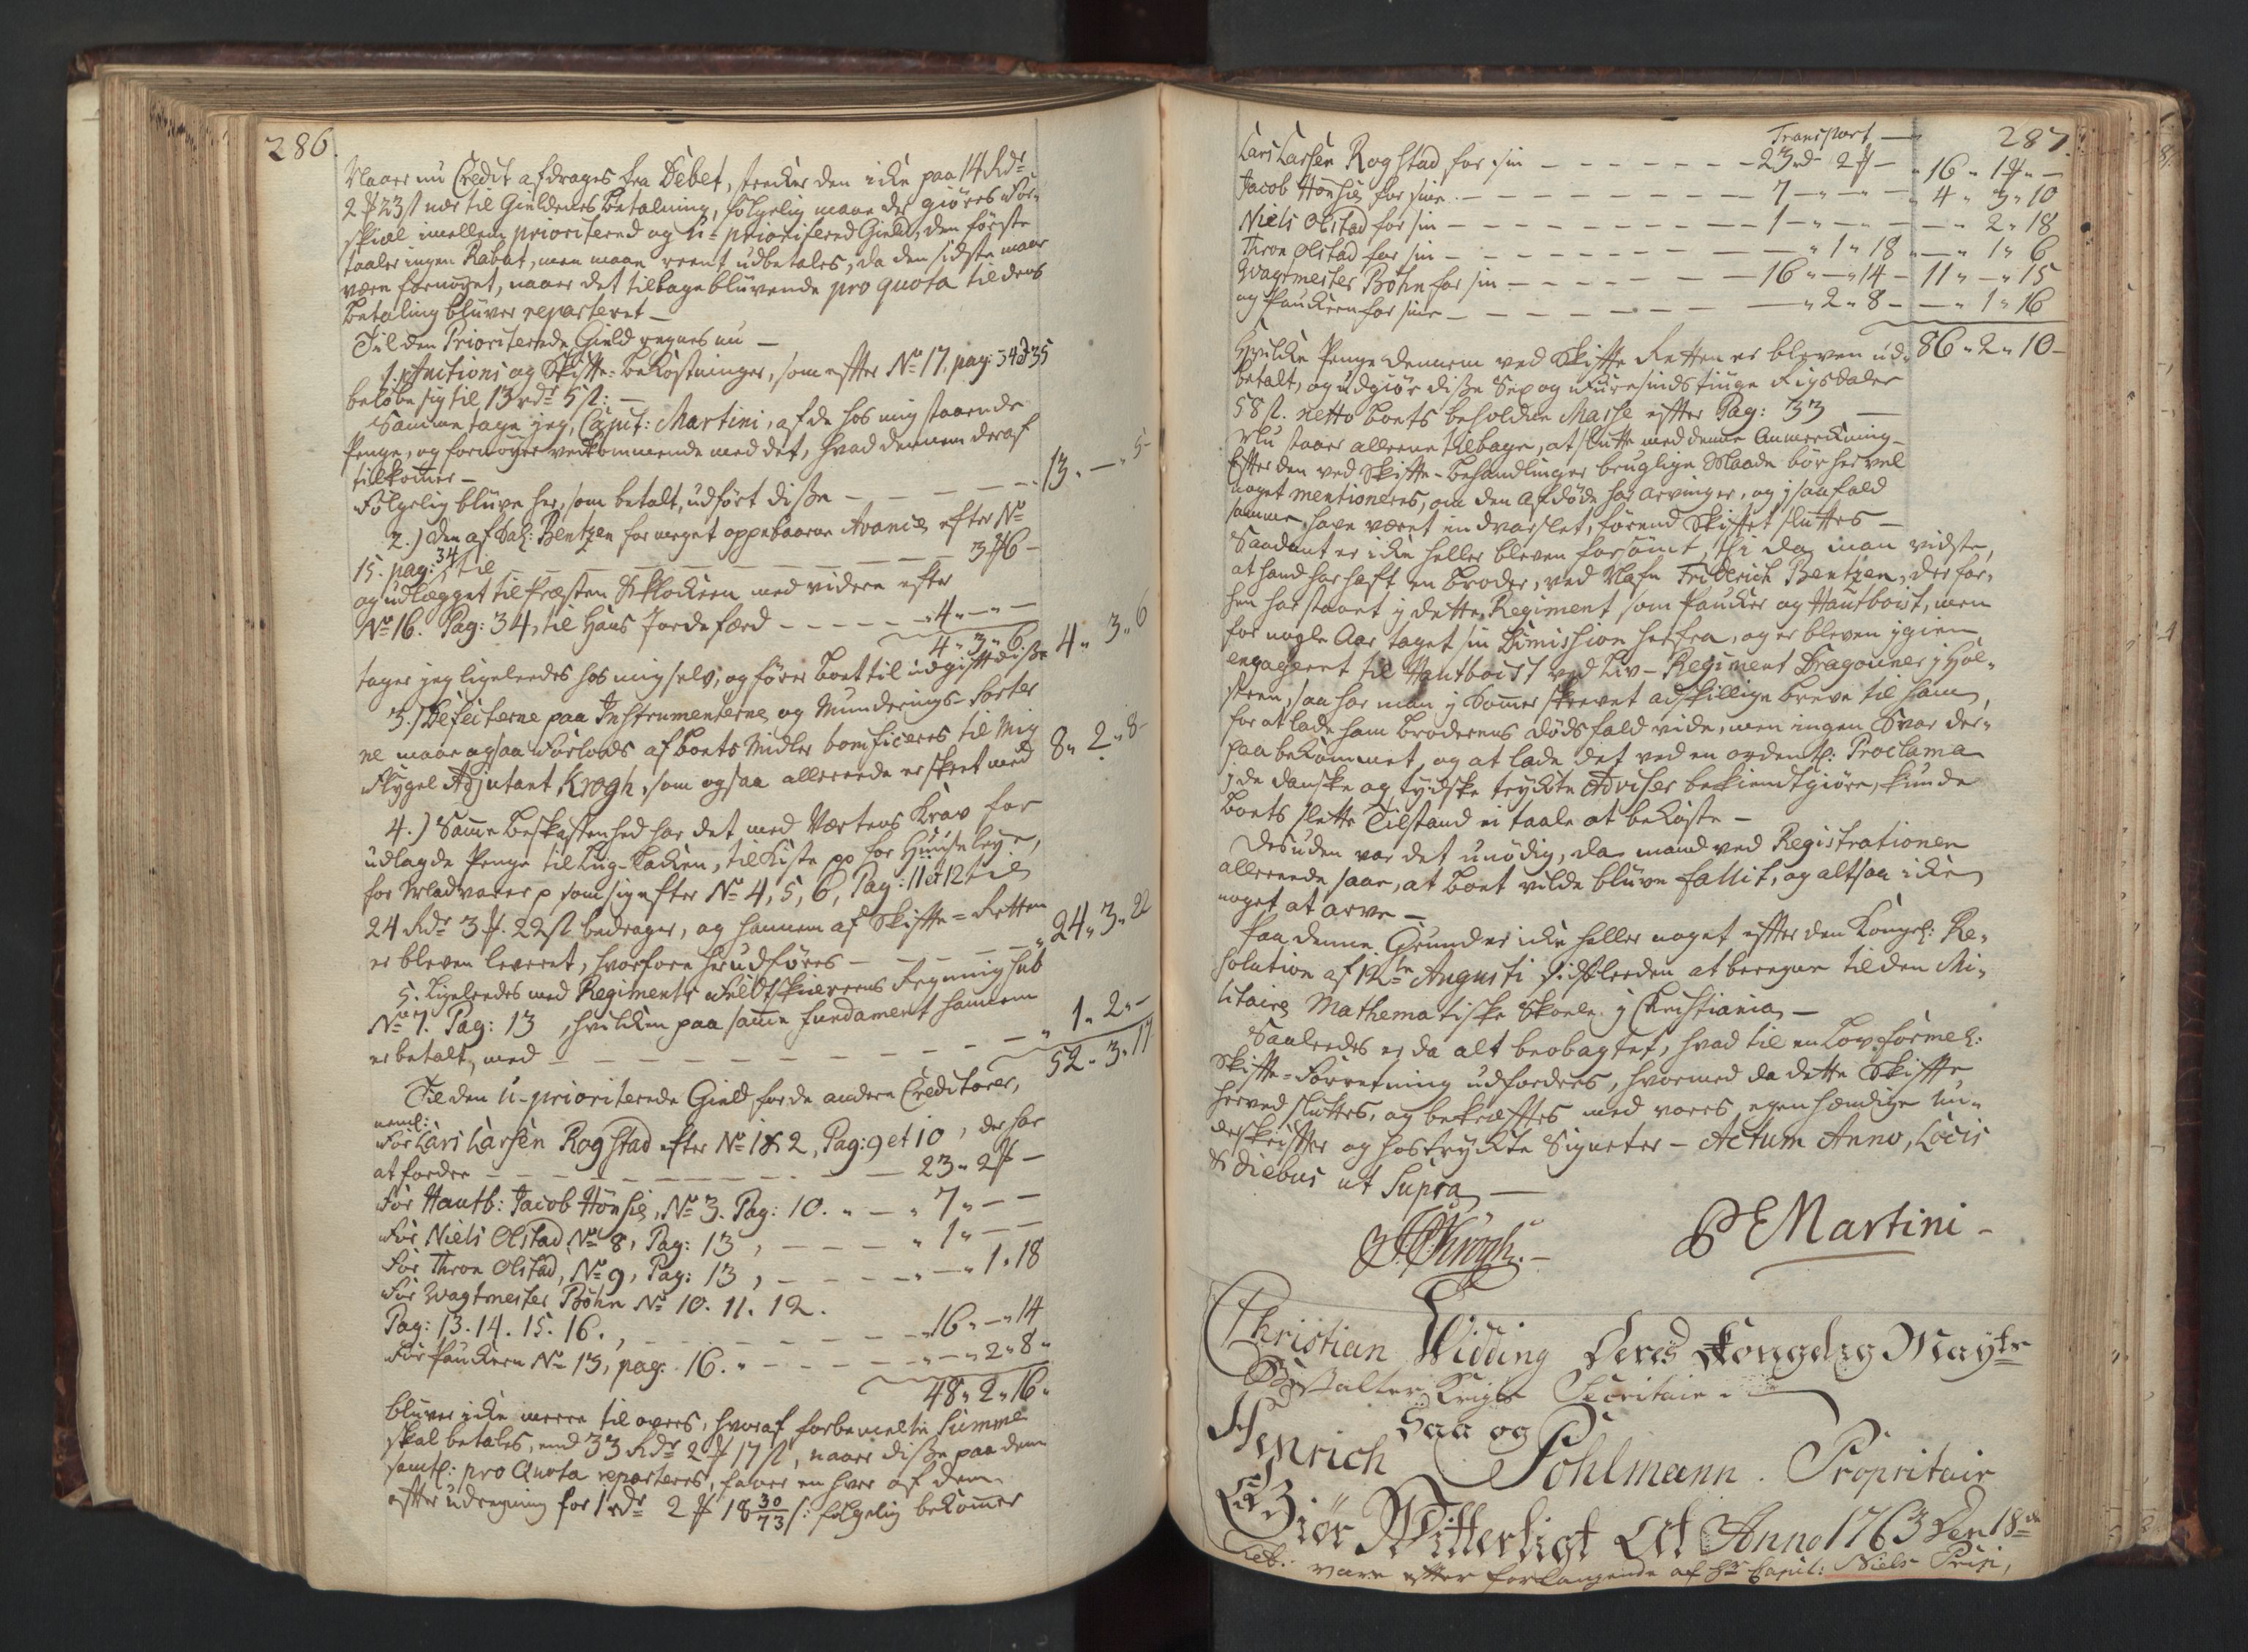 286.
Naar nu Credit afdrages fra Debet, strecker den icke paa 14 Rdr
2 ₰ 23 s nær til Gieldens Betalning, følgelig maae der giøres For-
skiæl imellem prioritered og u-prioritered Gield, den første
taaler ingen Rabat, men maae reent udbetales, da den sidste maae
være fornøyet, naar det tilbageblivende pro quota til dens
Betaling bliver reparteret —
Til den Prioriterede Gield regnes nu —
1. Auctions og Skifte-bekostninger, som efter No 17. pag: 34 & 35
beløbe sig til 13 rdr 5 s: —
Samme tager jeg, Capit: Martini, af de hos mig staaende
Penge, og fornøyer vedkommende med det, hvad dennem deraf
tilkommer —
Følgelig blive her, som betalt, udført disse — 13 " — " 5 -
2.) den af Sal: Bentzen for meget oppebaarne Avance efter No
15. pag: 34 til — 3 ₰ 6 -
og udlægget til Præsten & Klockeren med videre efter
No 16. Pag: 34, til Hans Jordefærd — 4 " — " —
4 " 3 " 6
tages jeg ligeleedes hos mig selv, og fører Boet til udgift disse 4 " 3 " 6
3.) Defecterne paa Instrumenterne og Munderings-Sorter
ne maae ogsaa Forlods af Boets Midler bonificeres til Mig
Flygel Adjutant Krogh, som ogsaa allereede er skeet med 8 " 2 " 8 -
4.) Samme Beskaffenhed har det med Værtens Krav for
udlagde Penge til Liig-Lacken, til Kiste pp for Huusleye,
for Madvarer p som sig efter No 4, 5, 6, Pag: 11 et 12 til
24 Rdr 3 ₰. 22 s bedrager, og hannem af Skifte-Retten
er bleven leveret, hvorfore her udføres — 24 " 3 " 22
5. Ligeleedes med Regiments Feldtskiærerens Regning sub
No 7. Pag: 13, hvilken paa samme fundament hannem
er betalt, med — " 1 " 2 " -
52 " 3 " 17
Til den u-prioriterede Gield for de andre Creditorer,
neml:
For Lars Larsen Rogstad efter No 1 & 2, Pag: 9 et 10, der har
at fordre — 23 " 2 ₰ -
For Hautb: Jacob Hønsie, No 3. Pag: 10. " — " 7 " — -
For Niels Olstad No 8, Pag: 13, — " 1 " — -
For Thron Olstad, No 9, Pag: 13, — " — " 1 " 18
For Wagtmester Böhn No 10. 11. 12.
Pag: 13. 14. 15. 16., — " 16 " — " 14
For Pauckern No 13, pag: 16. " — " — " 2 " 8 "
48 " 2 " 16 "
bliver icke meere til overs, hvoraf forbemelte Summe
skal betales, end 33 Rdr 2 ₰ 17 s, naar disse paa dem
samtl: pro Quota reparteres, faaer en hver af dem
efter udregning for 1 rdr 2 ₰ 18 30/73 s: følgelig bekommer
287.
Transport —
Lars Larsen Rogstad for sin — 23 rd 2 ₰ — " 16 " 1 ₰ " —
Jacob Hønsie for sine — 7 — " — " — " 4 " 3 " 10
Niels Olstad for sin — 1 — " — " — — " 2 " 18
Thron Olstad for sin — — " 1 " 18 " — " 1 " 6
Wagtmester Böhn for sin — 16 " — " 14 — 11 " — " 15
og Pauckern for sine — — " 2 " 8 — — " 1 " 16
86 " 2 " 10 -
Hvilke Penge dennem ved Skifte Retten er bleven ud-
betalt, og udgiør disse Sex og Fiiresindstiuge Rigsdaler
58 s. netto Boets beholdne Masse efter Pag: 33 —
Nu staaer alleene tilbage, at slutte med denne Anmerckning -
Efter den ved Skifte-behandlinger bruglige Maade bør her vel
noget mentioneres, om den Afdøde har Arvinger, og i saa fald
samme have været endvarslet, førend Skiftet sluttes —
Saadant er icke heller bleven forsømt, thi da man vidste,
at hand har haft en Broder, ved Nafn Friderich Bentzen, der for-
hen har staaet i dette Regiment som Paucker og Hautboist, men
for nogle Aar taget sin Dimission herfra, og er bleven igien
engageert til Hautboist ved Liv-Regiment Dragouner i Hol-
steen, saa har man i Sommer skrevet adskillige breve til ham,
for at lade ham Broderens dødsfald vide, men ingen Svar der-
paa bekommet, og at lade det ved en ordentl: Proclama
i de danske og tydske tryckte Adviser bekiendtgiøre, kunde
Boets slette Tilstand ei taale at bekoste —
Desuden var det unødig, da mand ved Registrationen
allereede saae, at Boet vilde blive fallit, og altsaa icke
noget at arve —
Paa denne Grund er icke heller noget efter den Kongel: Re-
solution af 12te Augusti sidstleeden at beregne til den Mi-
litaire Mathematiske Skoele i Christiania, —
Saaleedes er da alt beobagtet, hvad til en Lovformel:
Skifte-Forretning udfordres, hvormed da dette Skifte
herved sluttes, og bekræftes med vores egenhændige Un-
derskrifter og hostryckte Signeter — Actum Anno, Locis
& diebus ut Supra —
Krogh. —
Martini -
Christian Widding Deris Kongelig Mayts
Krigs Secritair
Saa og
Henrich Pohlmann. Propritair
Giør Witterligt At Anno 1763 Den 18de
vare efter forlangende af Hr Capit: Niels